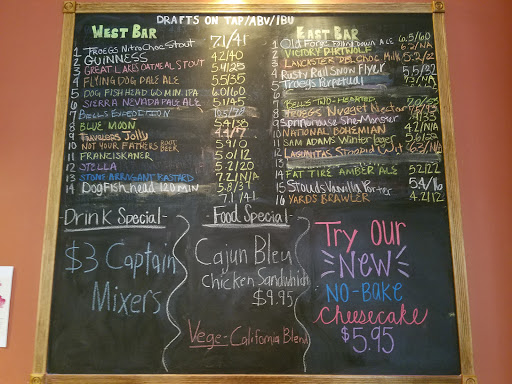 DRAFTS ON TAP/ABV/IBU
WEST BAR
1 TROEGS Nitro Choc Stout 7.1/41
2 GUINNESS 4.2/40
3 GREAT LAKES OATMEAL STOUT 5.4/25
4 FLYING DOG PALE ALE 5.5/35
5 DOG FISH HEAD 60 MIN. IPA 6.0/60
6 SIERRA NEVADA PALE ALE 5.1/45
7 BELL'S
8 BLUE MOON
9 TRAVELERS Jolly
10 NOT YOUR FATHERS ROOT BEER
11 FRANCISKANER 5.0/12
12 STELLA
13 STONE ARROGANT BASTARD
14 DOGFISH head 120 min
7.1/41
EAST BAR
1 Old Forge Fallen Down ALE
2 VICTORY DIRTWOLF
3 LANCASTER Choc Milk 5.2/22
4 Rusty Rail Snow Flyer
5 Troegs Perpetual
6
7 BELL'S TWO-HEARTED
8 TROEGS Nugget Nectar
9 SPRINGHOUSE She-Monster
10 NATIONAL BOHEMIAN
11 SAM ADAMS Winter lager
12 LAGUNITAS
14 FAT TIRE AMBER ALE 5.2/22
15 Stoudts Vanilla Porter 5.4/16
16 YARDS BRAWLER 4.2/12
Drink Special-
$3 Captain
Mixers
- Food Special-
Cajun Bleu
Chicken Sandwhich
$9.95
Vege - California Blend
Try Our
NEW
NO-BAKE
cheesecake
$5.95